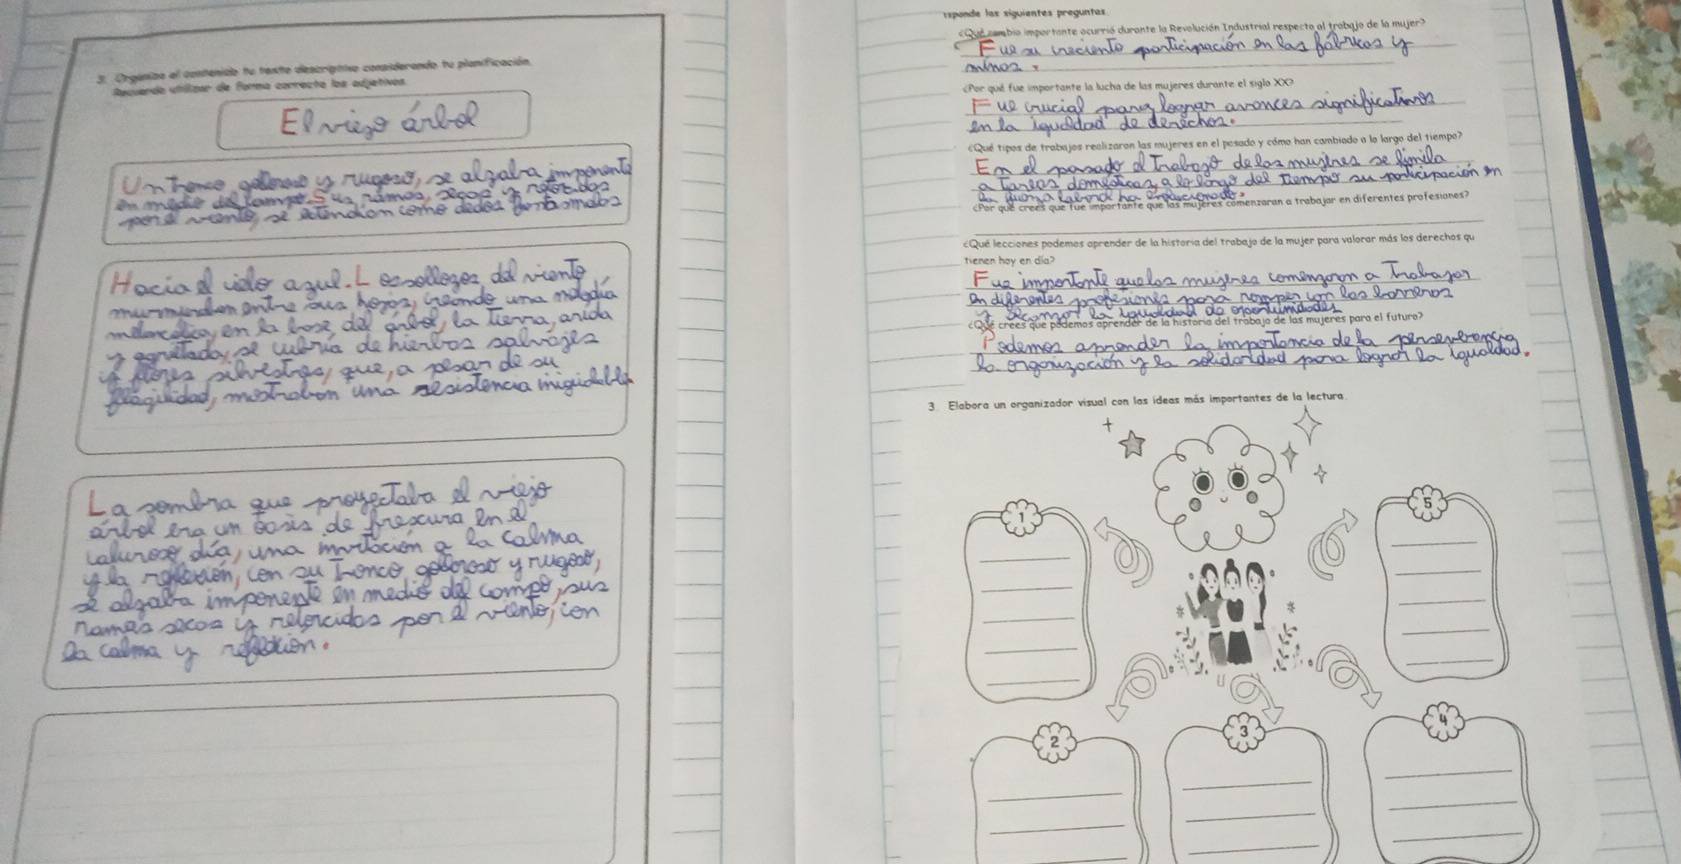 3. Organiza el contenido tu texto descriptivo considerando tu planificación.
Recuerda utilizar de forma correcta los adjetivos.
El viejo árbol
Un tronco, grueso y rugoso, se alzaba imponente
en medio del campo. Sus ramas, secas y retorcidas
por el viento, se extendían como dedos
Hacia el cielo azul. L del viento
murmuraban entre sus hojas, creando una melodía
melancólica, en la base del árbol, la tierra, árida
y agrietada, se cubría de hierbas salvajes
y flores silvestres, que, a pesar de su
fragilidad, mostraban una resistencia
La sombra que proyectaba el viejo
árbol era un oasis de frescura en el
caluroso día, una invitación a la calma
y la reflexión, con su tronco y rugoso,
se alzaba imponente en medio del campo, sus
ramas secas y retorcidas por el viento, con
la calma y reflexión.
responde las siguientes preguntas.
¿Qué cambio importante ocurrió durante la Revolución Industrial respecto al trabajo de la mujer?
Fue su creciente participación en las fábricas y
minas.
¿Por qué fue importante la lucha de las mujeres durante el siglo XX?
Fue crucial para lograr avances significativos
en la igualdad de derechos.
¿Qué tipos de trabajos realizaron las mujeres en el pasado y cómo han cambiado a lo largo del tiempo?
En el pasado el trabajo de las mujeres se limita
a tareas domésticas, a lo largo del tiempo su participación en
la fuerza laboral ha
¿Por qué crees que fue importante que las mujeres comenzaran a trabajar en diferentes profesiones?
¿Qué lecciones podemos aprender de la historia del trabajo de la mujer para valorar más los derechos qu
tienen hoy en día?
Fue importante que las mujeres comenzaran a trabajar
en diferentes profesiones para romper con las barreras
y la igualdad de oportunidades
¿Qué crees que podemos aprender de la historia del trabajo de las mujeres para el futuro?
Podemos aprender la importancia de la perseverancia
la organización y la solidaridad para lograr la igualdad.
3. Elabora un organizador visual con las ideas más importantes de la lectura.
1
5
2
3
4